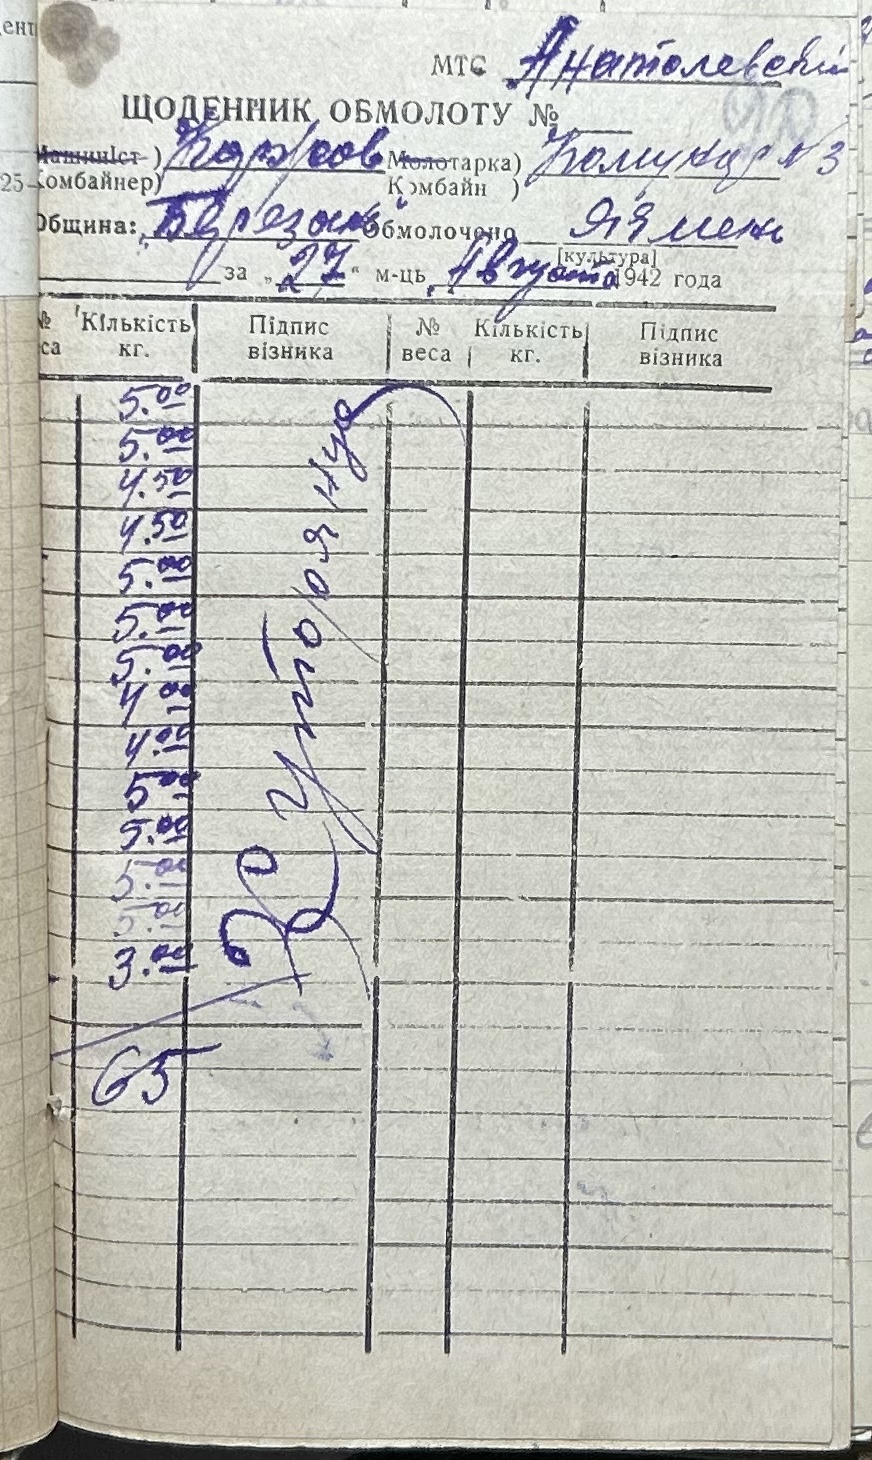 МТС Анатолевский
ЩОДЕННИК ОБМОЛОТУ №
Машиніст ) Молотарка)
Комбайнер) Комбайн ) Комунар №3
Община: Березань Обмолочено Ячмень
[культура]
за „27“ м-ць Августа 1942 года
№ Кількість Підпис № Кількість Підпис
веса кг. візника веса кг. візника
5.00
5.00
4.50
4.50
5.00
5.00
5.00
4.00
4.00
5.00
5.00
5.00
5.00
3.00
65